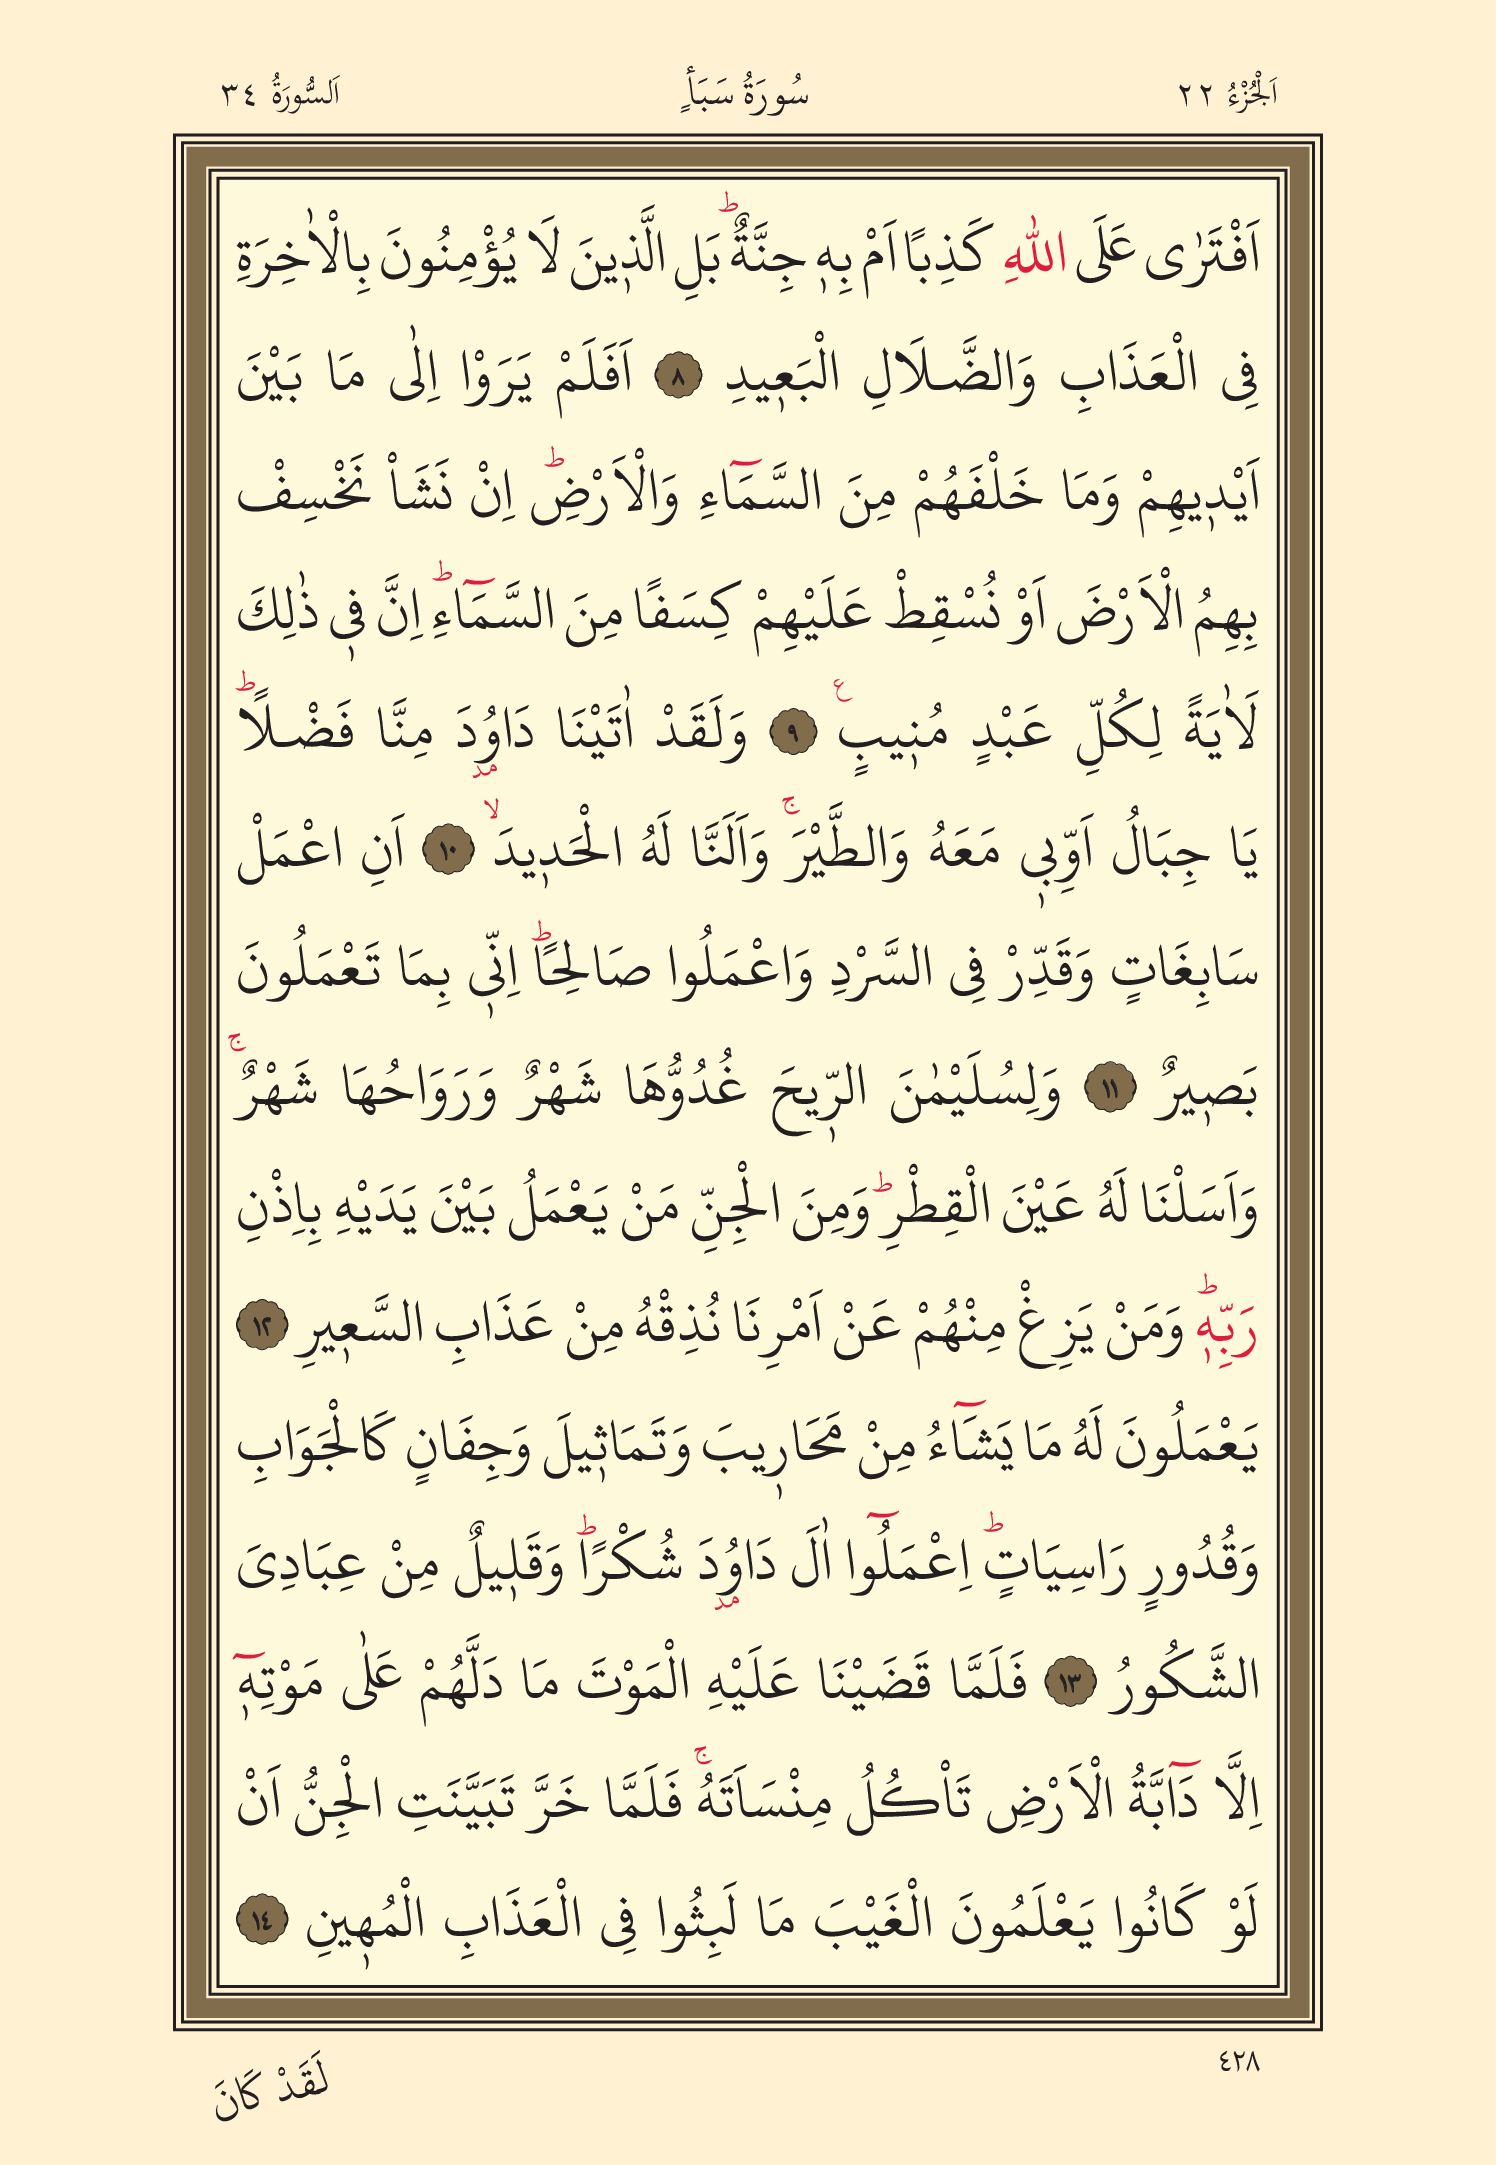 اَلْجُزْءُ ٢٢ سُورَةُ سَبَأٍ اَلسُّورَةُ ٣٤
اَفْتَرٰى عَلَى اللّٰهِ كَذِبًا اَمْ بِهٖ جِنَّةٌۜ بَلِ الَّذٖينَ لَا يُؤْمِنُونَ بِالْاٰخِرَةِ
فِى الْعَذَابِ وَالضَّلَالِ الْبَعٖيدِ ٨ اَفَلَمْ يَرَوْا اِلٰى مَا بَيْنَ
اَيْدٖيهِمْ وَمَا خَلْفَهُمْ مِنَ السَّمَٓاءِ وَالْاَرْضِۜ اِنْ نَشَاْ نَخْسِفْ
بِهِمُ الْاَرْضَ اَوْ نُسْقِطْ عَلَيْهِمْ كِسَفًا مِنَ السَّمَٓاءِۜ اِنَّ فٖى ذٰلِكَ
لَاٰيَةً لِكُلِّ عَبْدٍ مُنٖيبٍࣖ ٩ وَلَقَدْ اٰتَيْنَا دَاوُدَ مِنَّا فَضْلًاۜ
مد
يَا جِبَالُ اَوِّبٖى مَعَهُ وَالطَّيْرَۚ وَاَلَنَّا لَهُ الْحَدٖيدَۙ ١٠ اَنِ اعْمَلْ
سَابِغَاتٍ وَقَدِّرْ فِى السَّرْدِ وَاعْمَلُوا صَالِحًاۜ اِنّٖى بِمَا تَعْمَلُونَ
بَصٖيرٌ ١١ وَلِسُلَيْمٰنَ الرّٖيحَ غُدُوُّهَا شَهْرٌ وَرَوَاحُهَا شَهْرٌۚ
وَاَسَلْنَا لَهُ عَيْنَ الْقِطْرِۜ وَمِنَ الْجِنِّ مَنْ يَعْمَلُ بَيْنَ يَدَيْهِ بِاِذْنِ
رَبِّهٖۜ وَمَنْ يَزِغْ مِنْهُمْ عَنْ اَمْرِنَا نُذِقْهُ مِنْ عَذَابِ السَّعٖيرِ ١٢
يَعْمَلُونَ لَهُ مَا يَشَٓاءُ مِنْ مَحَارٖيبَ وَتَمَاثٖيلَ وَجِفَانٍ كَالْجَوَابِ
وَقُدُورٍ رَاسِيَاتٍۜ اِعْمَلُٓوا اٰلَ دَاوُدَ شُكْرًاۜ وَقَلٖيلٌ مِنْ عِبَادِىَ
مد
الشَّكُورُ ١٣ فَلَمَّا قَضَيْنَا عَلَيْهِ الْمَوْتَ مَا دَلَّهُمْ عَلٰى مَوْتِهٖٓ
اِلَّا دَٓابَّةُ الْاَرْضِ تَاْكُلُ مِنْسَاَتَهُۚ فَلَمَّا خَرَّ تَبَيَّنَتِ الْجِنُّ اَنْ
لَوْ كَانُوا يَعْلَمُونَ الْغَيْبَ مَا لَبِثُوا فِى الْعَذَابِ الْمُهٖينِ ١٤
٤٢٨
لَقَدْ كَانَ